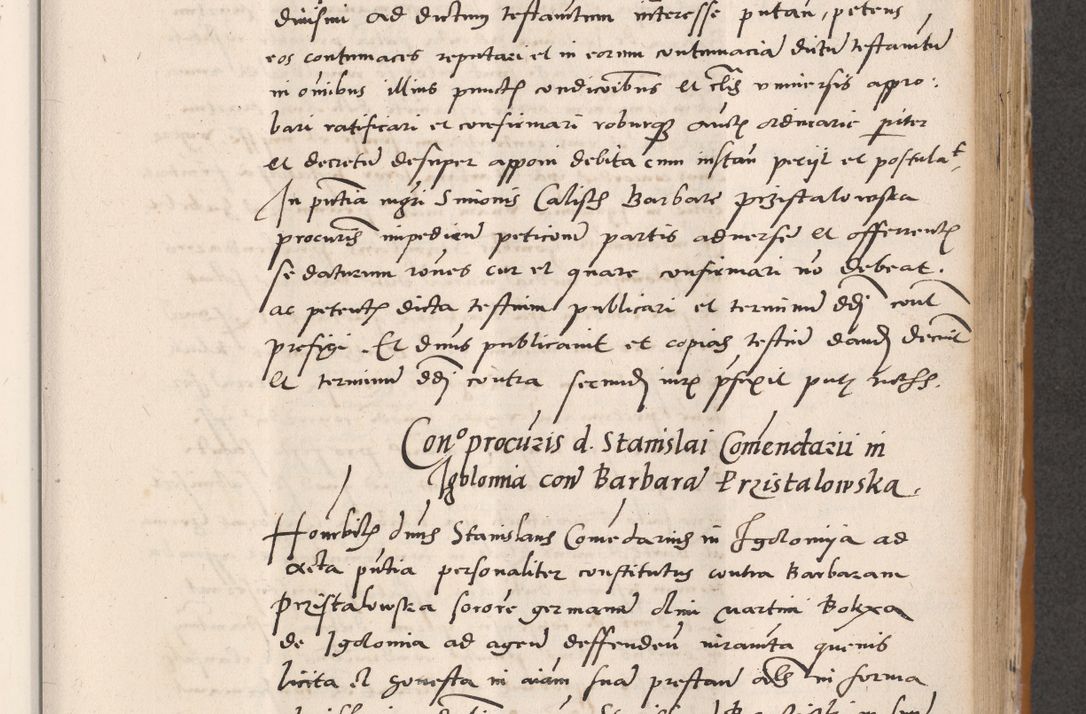 divisim ad dictum testamentum interesse putan, petens
eos contumaces reputari et in eorum contumaciā dictū testamtū
in oībus illius punctis condicōībus et clīs universis appro:
bari ratificari et confirmari roburqz auctē ordinarie pariter
et decretū desuper apponi debita cum instan petiit et postulat
In pntia mgri Simonis Calisch Barbare Przistalowska
procuris impedien peticioni partis adverse et offerrentis
se daturum rōnes cur et quare confirmari nō debeat.
ac petentis dicta testium publicari et terminū ddi contra
prefigi. Et dnus publicavit et copias testiū dandas decrevit
et terminū ddi contra secundū
Cono procuris d. Stanislai Comendarii in
Igolomia con Barbarā Przistalowska.
Honrbilis dnus Stanislaus Comēdarius in Igolomija ad
acta pntia personaliter constitutus contra Barbaram
Przistalowska sorore germanā olim Martini Boksa
de Igolomia ad agen deffenden iuramta quevis
licita et honesta in aīam suā prestan als in forma